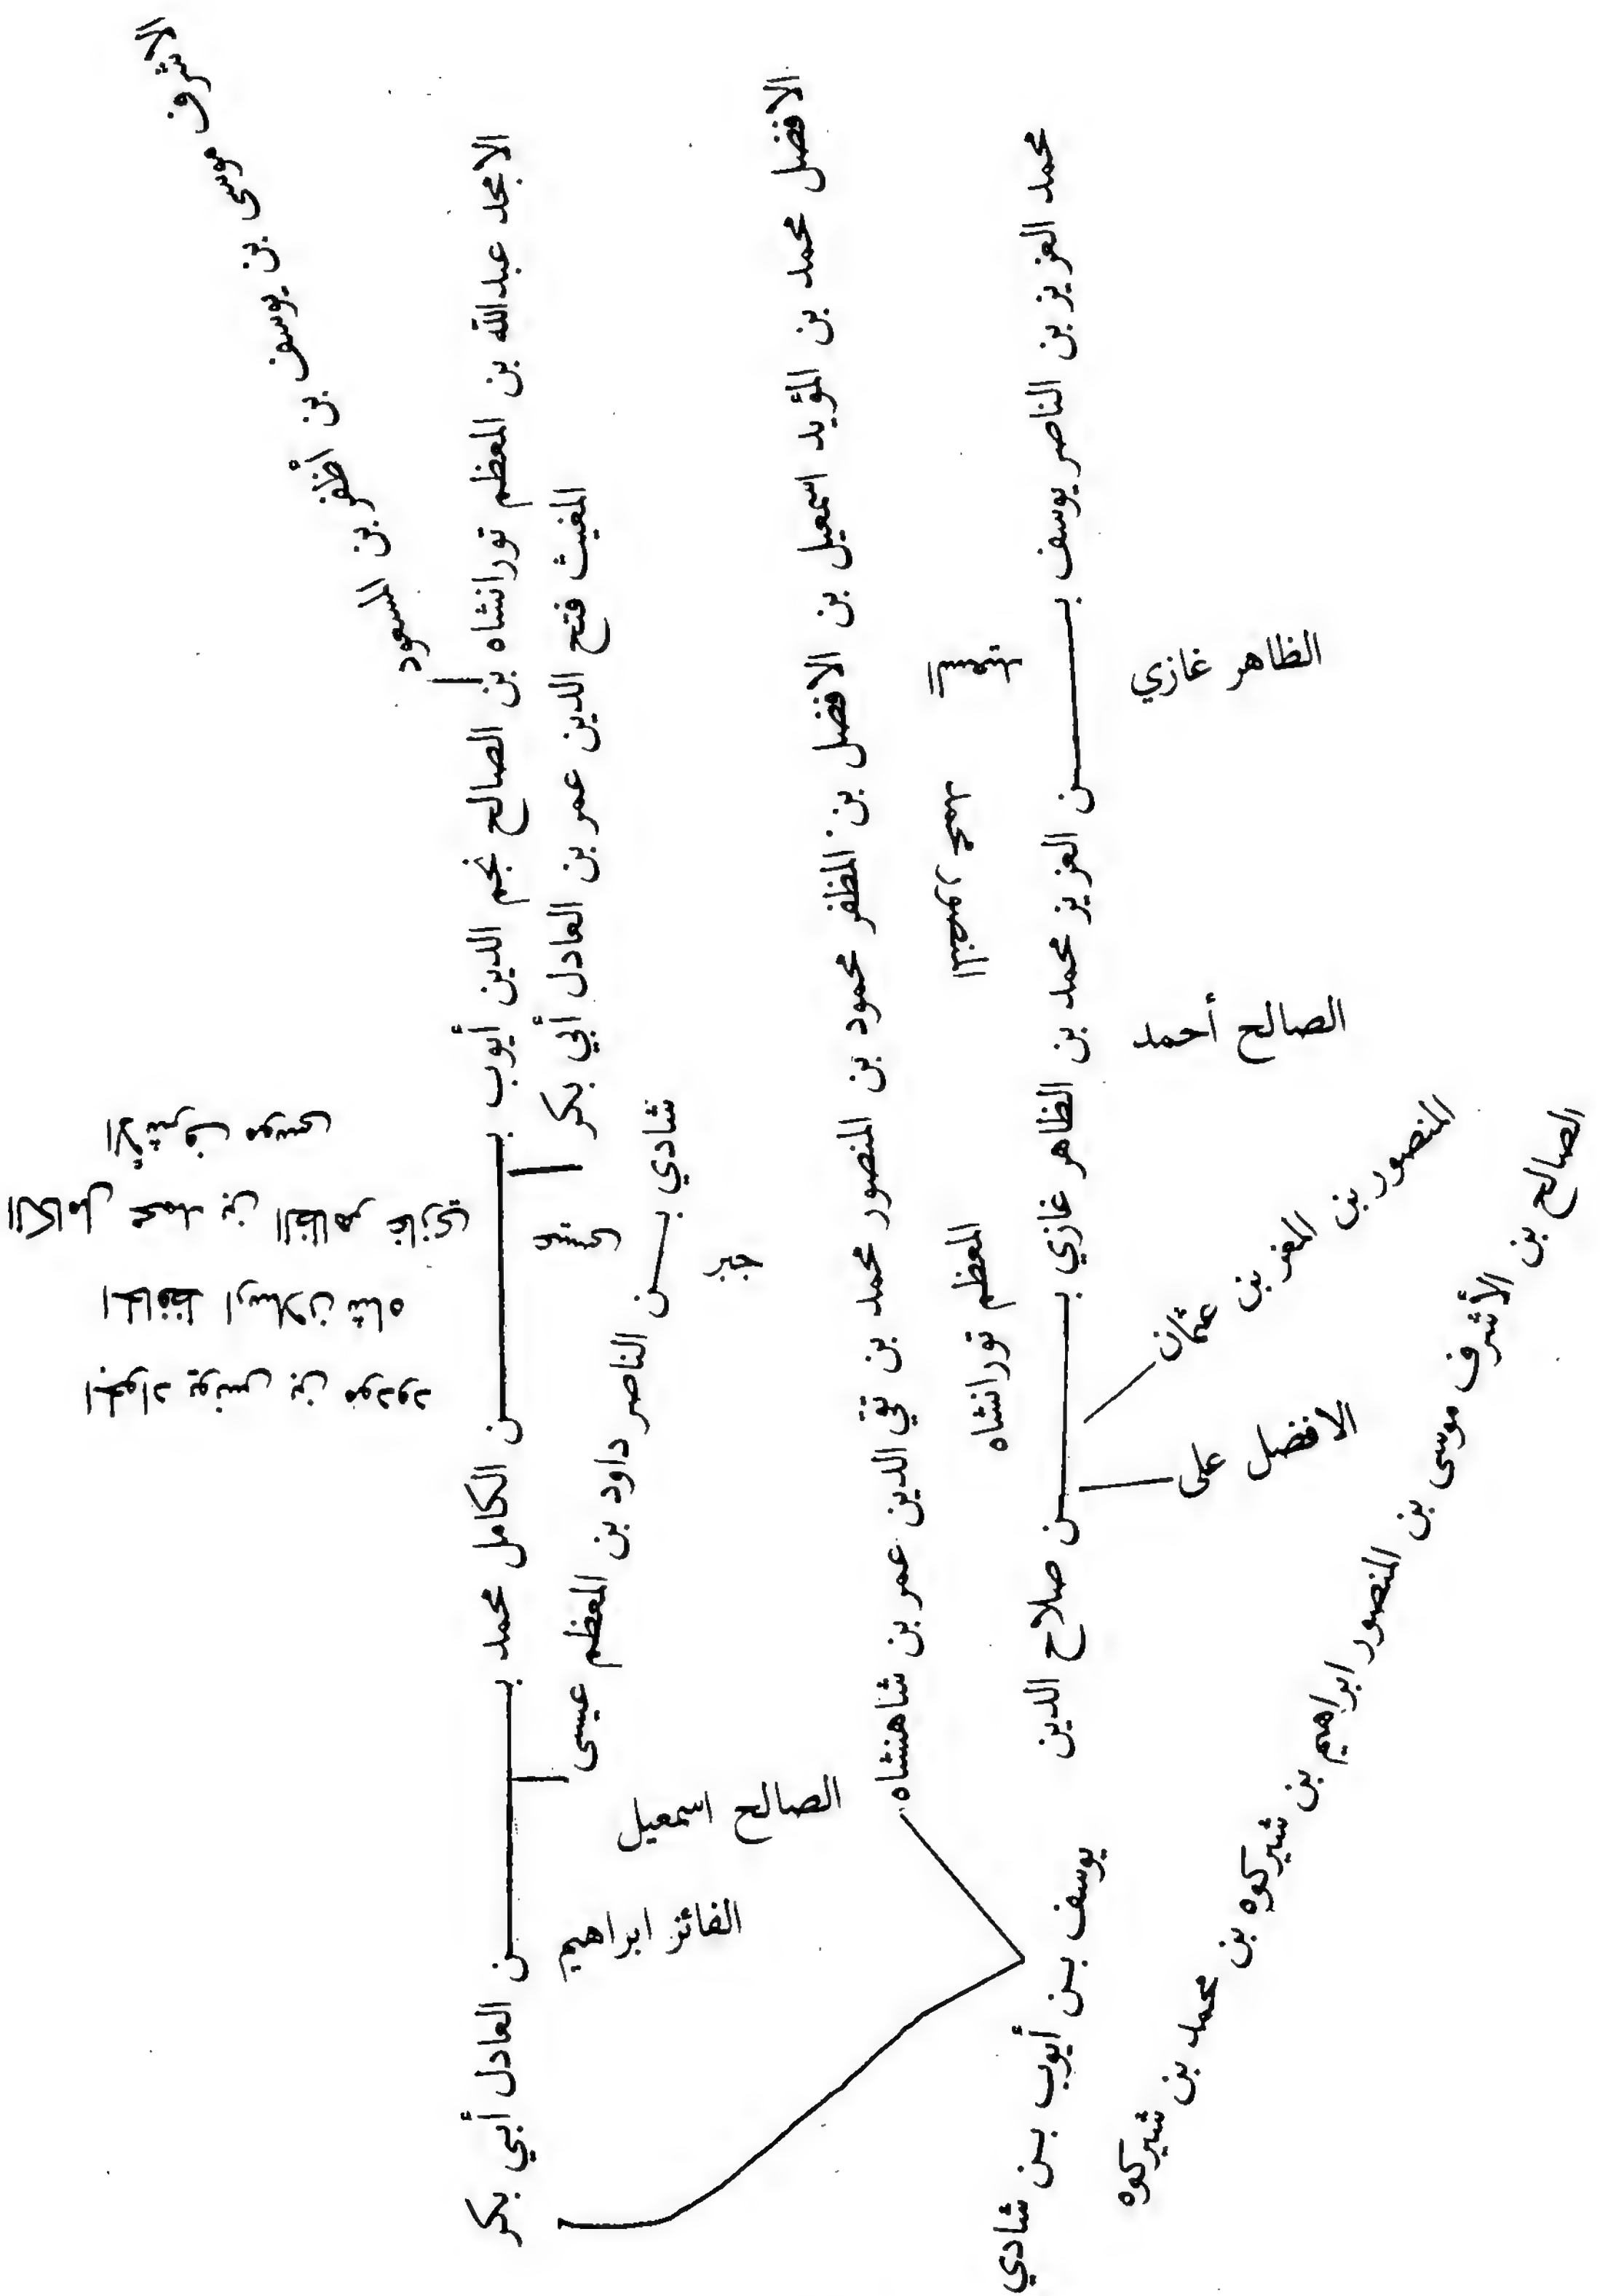 الاشرف موسى بن يوسف بن اظفر بن المسعود
الامجد عبدالله بن المعظم تورانشاه بن الصالح نجم الدين أيوب بــــن الكامل محمد بــــن العادل أبي بكر
المغيث فتح الدين عمر بن العادل أبي بكر
الاشرف موسى
الكامل محمد بن الظاهر غازي
الحافظ ارسلان شاه
الجواد يونس بن مودود
شادي بــن الناصر داود بن المعظم عيسى
الصالح اسمعيل
الفائز ابراهيم
الافضل محمد بن المؤيد اسمعيل بن الافضل بن المظفر محمود بن المنصور محمد بن تقي الدين عمر بن شاهنشاه
المعظم تورانشاه
محمد العزيز بن الناصر يوسف بــــن العزيز محمد بن الظاهر غازي بــــن صلاح الدين
يوسف بــن أيوب بــن شادي
الظاهر غازي
الصالح أحمد
المنصور بن العزيز عثمان
الافضل علي
الصالح بن الأشرف موسى بن المنصور ابراهيم بن شيركوه بن محمد بن شيركوه